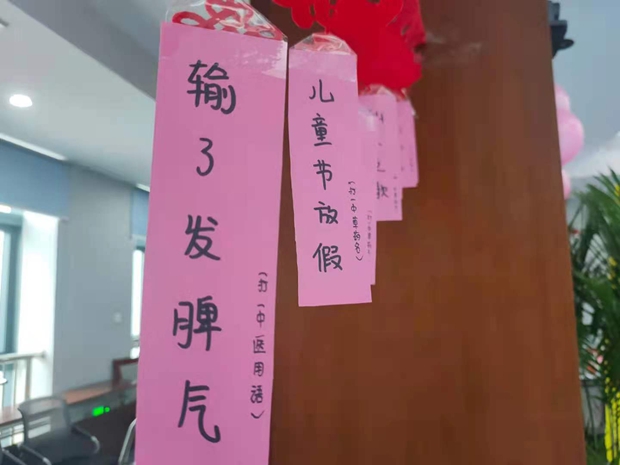 输了发脾气
(打一中医用语)
儿童节放假
(打一中草药名)